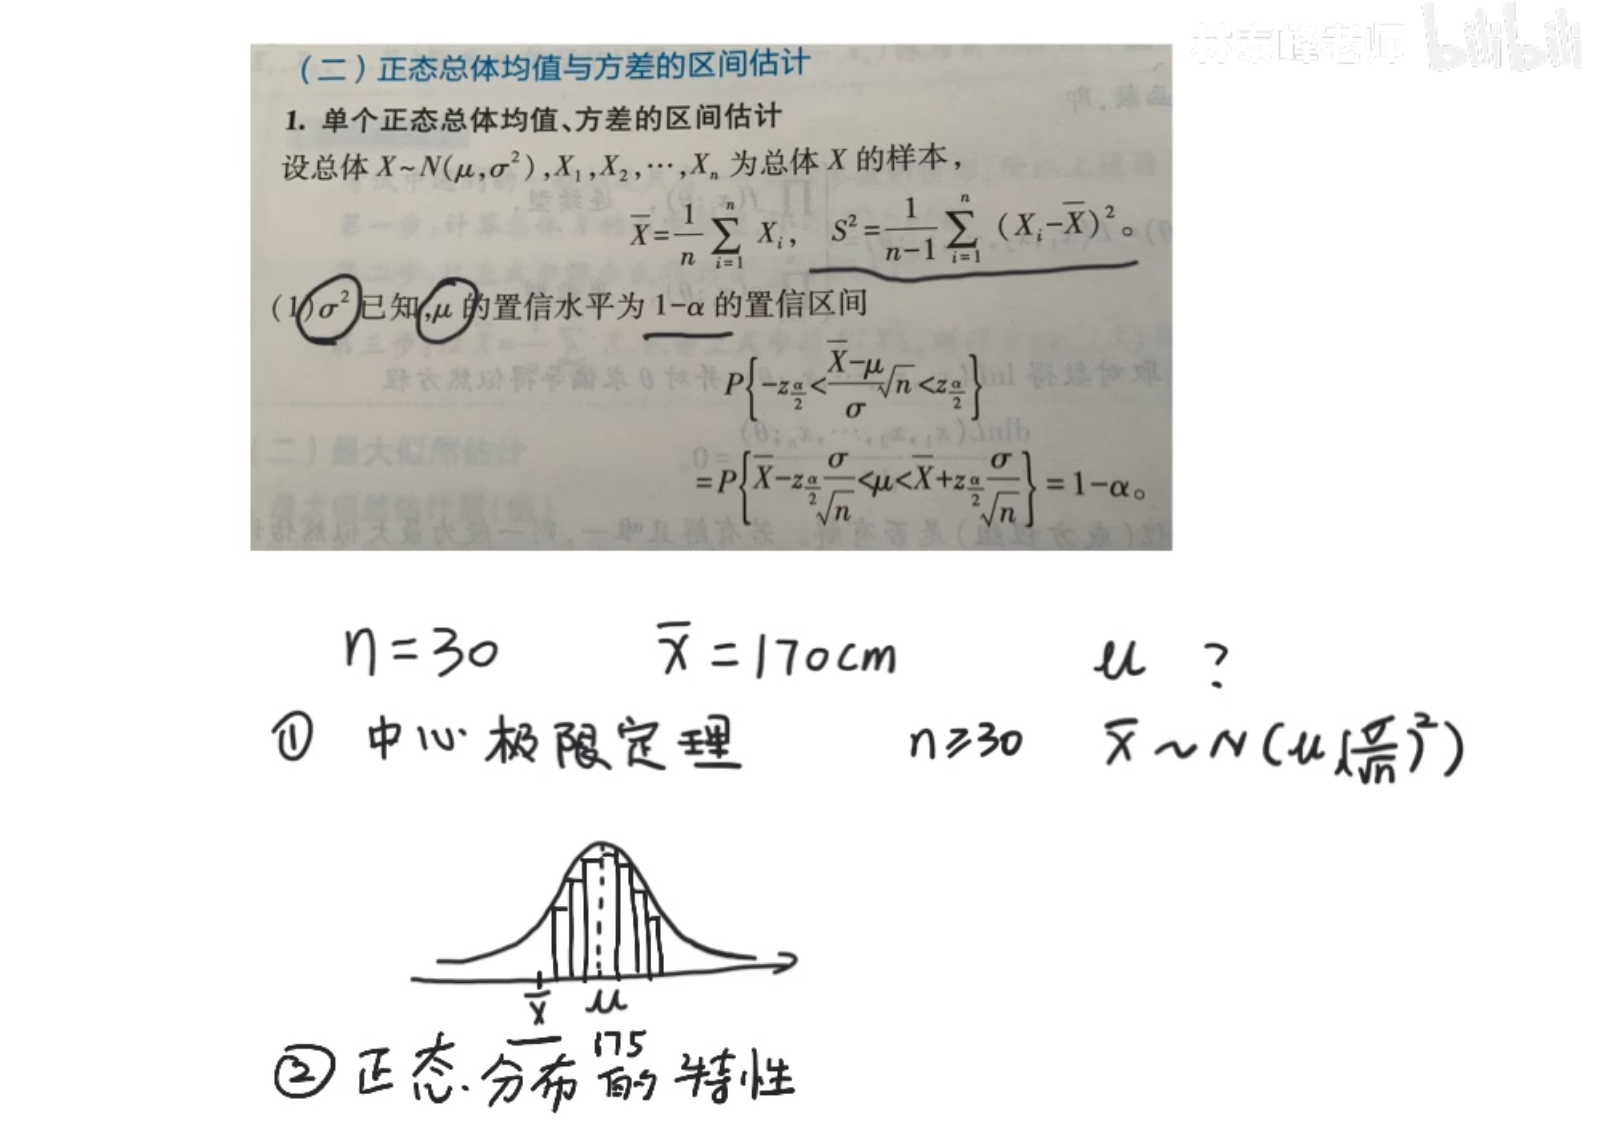 林泰峰老师 bilibili
(二)正态总体均值与方差的区间估计
1. 单个正态总体均值、方差的区间估计
设总体 X~N(μ,σ²),X₁,X₂,…,Xₙ 为总体 X 的样本,
X̄=\frac{1}{n}∑_{i=1}^{n} Xᵢ, S²=\frac{1}{n-1}∑_{i=1}^{n}(Xᵢ-X̄)²。
(1)σ²已知,μ的置信水平为 1-α 的置信区间
P{-z_{\frac{α}{2}}<\frac{X̄-μ}{σ}√n<z_{\frac{α}{2}}}
=P{X̄-z_{\frac{α}{2}}\frac{σ}{√n}<μ<X̄+z_{\frac{α}{2}}\frac{σ}{√n}}=1-α。
n=30 x̄=170cm μ ?
① 中心极限定理 n≥30 x̄~N(μ,(\frac{σ}{√n})²)
x̄ μ
175
② 正态分布的特性